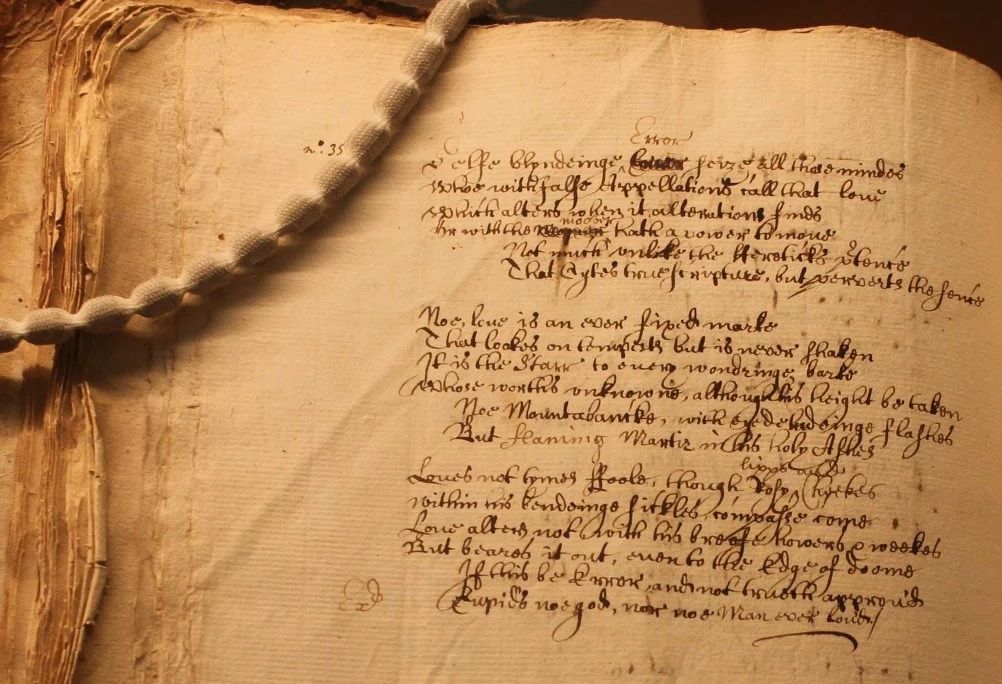 Error
n°. 35
Selfe blyndeinge seize all those mindes
Whoe with false Appellations call that loue
Which alters when it alterations finds
moouer
Or with the hath a power to moue
Not much unlike the Hereticks p'tence
That Cytes true scripture, but perverts the sence
Noe, loue is an ever fixed marke
That lookes on tempests but is never shaken
It is the Starr to euery wondringe barke
Whose worths unknowne, although his height be taken
Noe Mountabancke, with eyedeludeinge flashes
But flaming Martir in his holy Ashes
lipps and
Loues not tymes Foole, though Rosy Cheekes
within his bendeinge sickles, compasse come
Loue alters not with his breife howers & weekes
But beares it out, even to the Edge of doome
If this be Error, and not trueth approu'd
Cupids noe god, nor noe Man ever lou'd